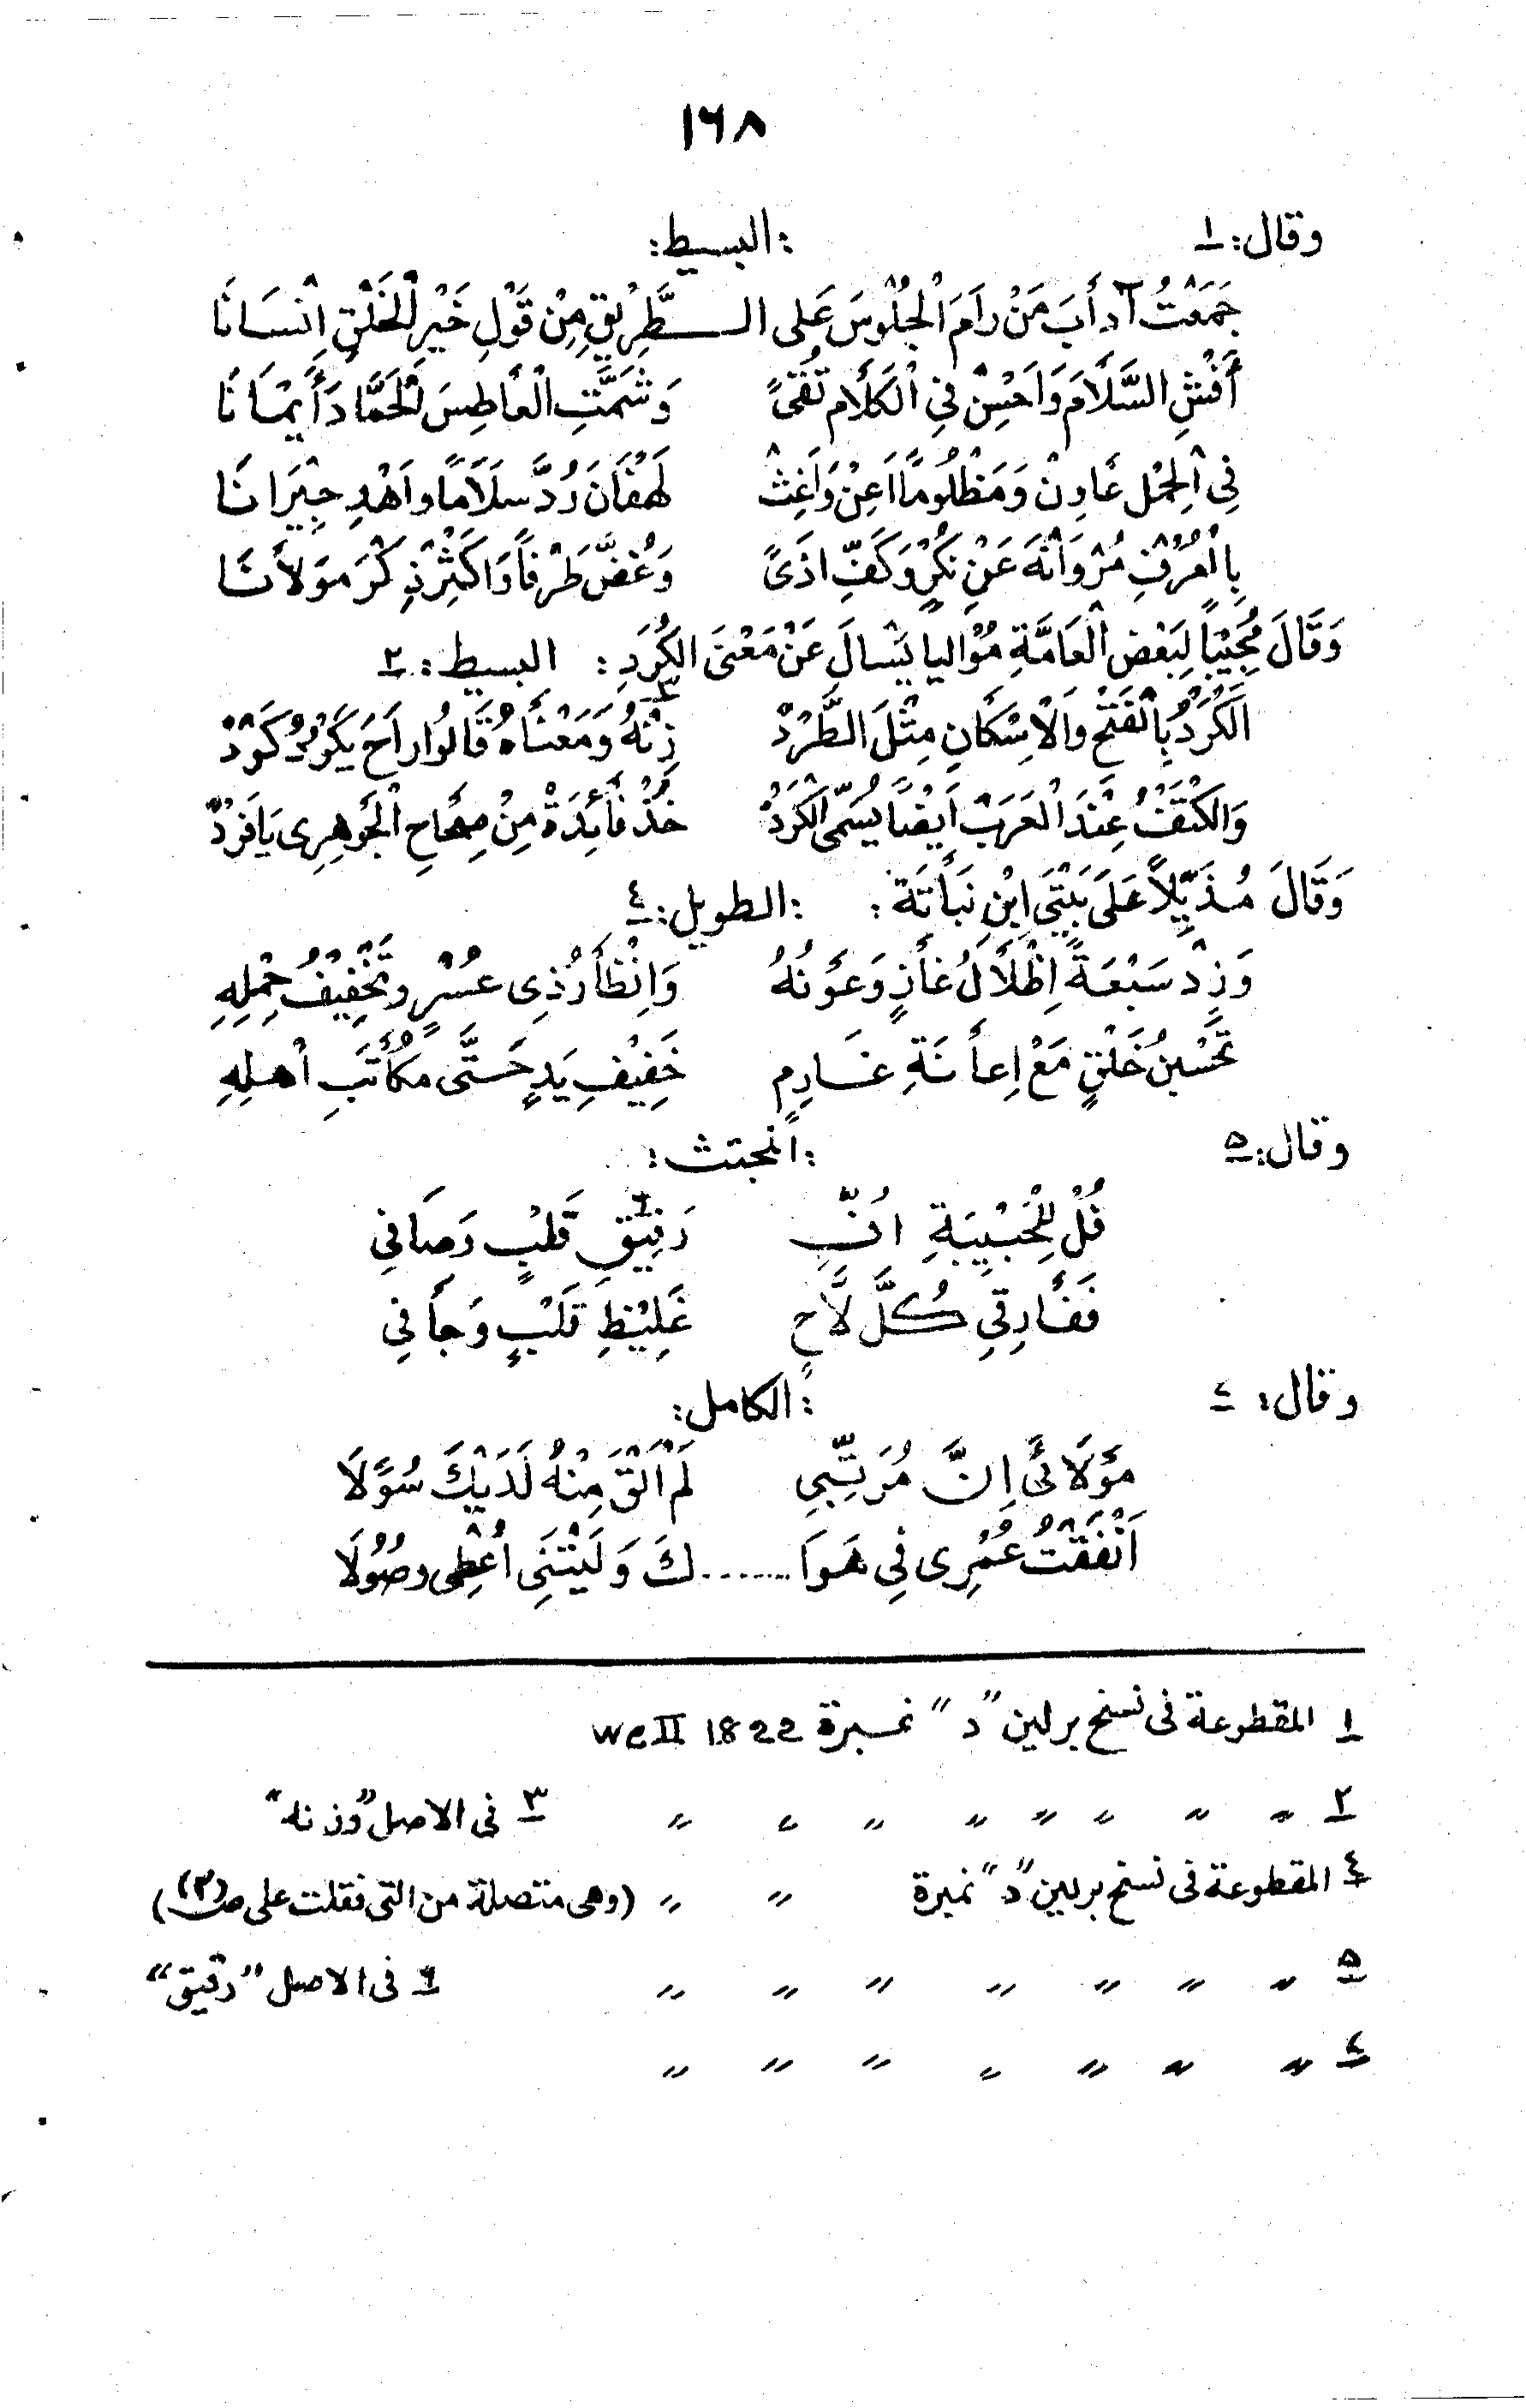 ١٦٨
وقال: ١ :البسيط:
جَمَعْتُ آدأبَ مَنْ رأمَ الْجُلُوسَ عَلى الـطَّرِيْقِ مِنْ قَوْلِ خَيْرِ الْخَلْقِ اِنْسَانَا
أَفْشِ السَّلَامَ وَاَحْسِنْ فِي الْكَلَامِ تُقىً وَشَمَّتِ الْعَاطِسَ الْحَمَّادَ أَيْمَانَا
فِي الْحِمْلِ عَاوِنْ وَمَظْلُومًا اَعِنْ وَاَغِثْ لَهْفَانَ رُدَّ سلَامًا واَهْدِ حِيْرَانَا
بِالْعُرْفِ مُرْ وَانْهَ عَنْ نَكْرٍ وَكَفِّ اذَىً وَغُضَّ طَرْفاً وَاكَثِرْ ذِكْرَ مَوْلَانَا
وَقَالَ مُجِيْبًا لِبَعْضِ الْعَامَّةِ مُوْاليا يَسْالَ عَنْ مَعْنَى الكُرَدِ: البسيط: ٢
اَلْكَرْدُ بِالْفَتْحِ وَالْاِسْكَانِ مِثْلَ الطَّرْدْ زِنْهُ ٣ وَمَعْنَاهُ قَالُوا رَاحَ يَكْرُدُ كَرْدْ
وَالكَتْفُ عِنْدَ الْعَرَبْ اَيْضاً يُسَمّى الْكَرْدْ خُذْ فَائِدَةْ مِنْ صِحَاحِ الْجَوهِرِى يَافَرْدْ
وَقَالَ مُذَيِّلاً عَلَى بَيْتَىِ ابْنِ نَبَاتَةَ: :الطويل: ٤
وَزِدْ سَبْعَةً اِظْلَالُ غَازٍ وَعَوْنُهُ وَاِنْظَارُ ذِى عُسْرٍ وتَخْفِيْفُ حِمْلِهِ
تَحْسِينُ خَلْقٍ مَعْ اِعانَةِ غَارِمٍ خَفِيْفِ يَدٍ حَتَّى مَكَاتَبِ اْهلِهِ
وقال: ٥ :المجتث:
قُلْ لِلْحَبِيْبَةِ انِّى رَفِيْقِ ٦ قَلْبٍ وَصَافِي
فَفَارِقِي كُلَّ لَاحٍ غَلِيْظِ قَلْبٍ وَجَافِي
وقال: ٧ :الكامل:
مَوْلَائَى اِنَّ مُرَتِّبِي لَمْ اَلْقَ مِنْهُ لَدَيْكَ سُوْلَا
اَنْفَقْتُ عُمُرِى فِي هَوَا........كَ وَلَيْتَنِى اُعْطِى وصُوْلَا
١ المقطوعة فى نسخ برلين "د" نمبرة We II 1822
٢ " " " " " " " " ٣ فى الاصل "وزنه"
٤ المقطوعة فى نسخ برلين "د" نمبرة " " (وهى متصلة من التى نقلت على ص(٣))
٥ " " " " " " " ٦ فى الاصل "رقيق"
٧ " " " " " " "